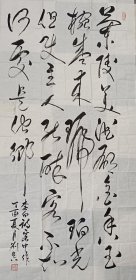 蘭陵美酒郁金香玉
椀盛来琥珀光
但使主人能醉客不知
何处是他鄉 李白客中作
丁酉夏